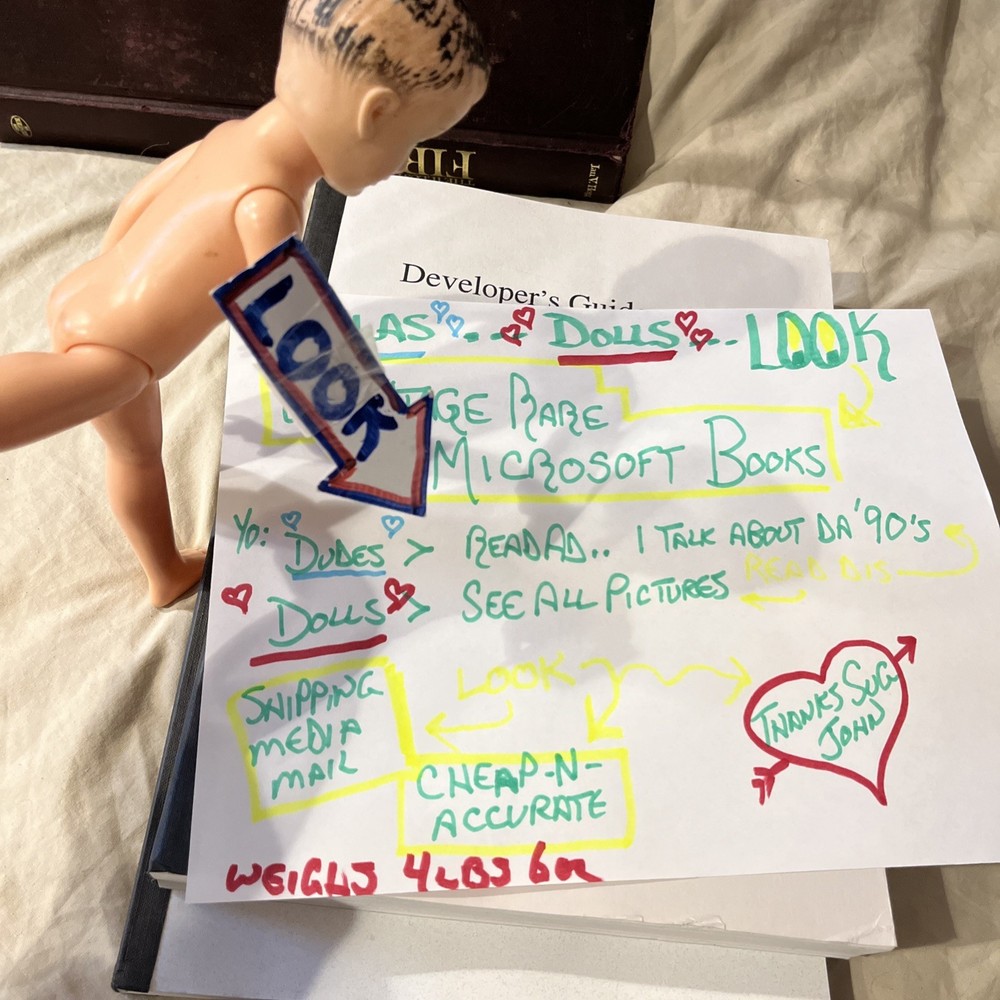 Developer's Guid
LAS... DOLLS... LOOK
LOOK
TAGE RARE
MICROSOFT BOOKS
YO: DUDES > READ AD.. I TALK ABOUT DA '90'S
READ DIS
DOLLS > SEE ALL PICTURES
LOOK
SHIPPING
MEDIA
MAIL
THANKS SUG
JOHN
CHEAP-N-
ACCURATE
WEIGHS 4LBS 6oz